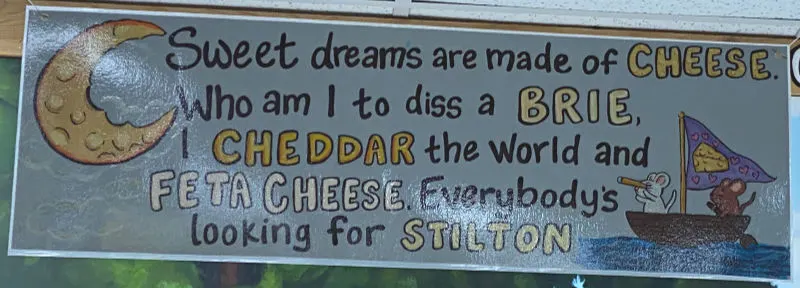 Sweet dreams are made of CHEESE.
Who am I to diss a BRIE,
I CHEDDAR the world and
FETA CHEESE. Everybody's
looking for STILTON